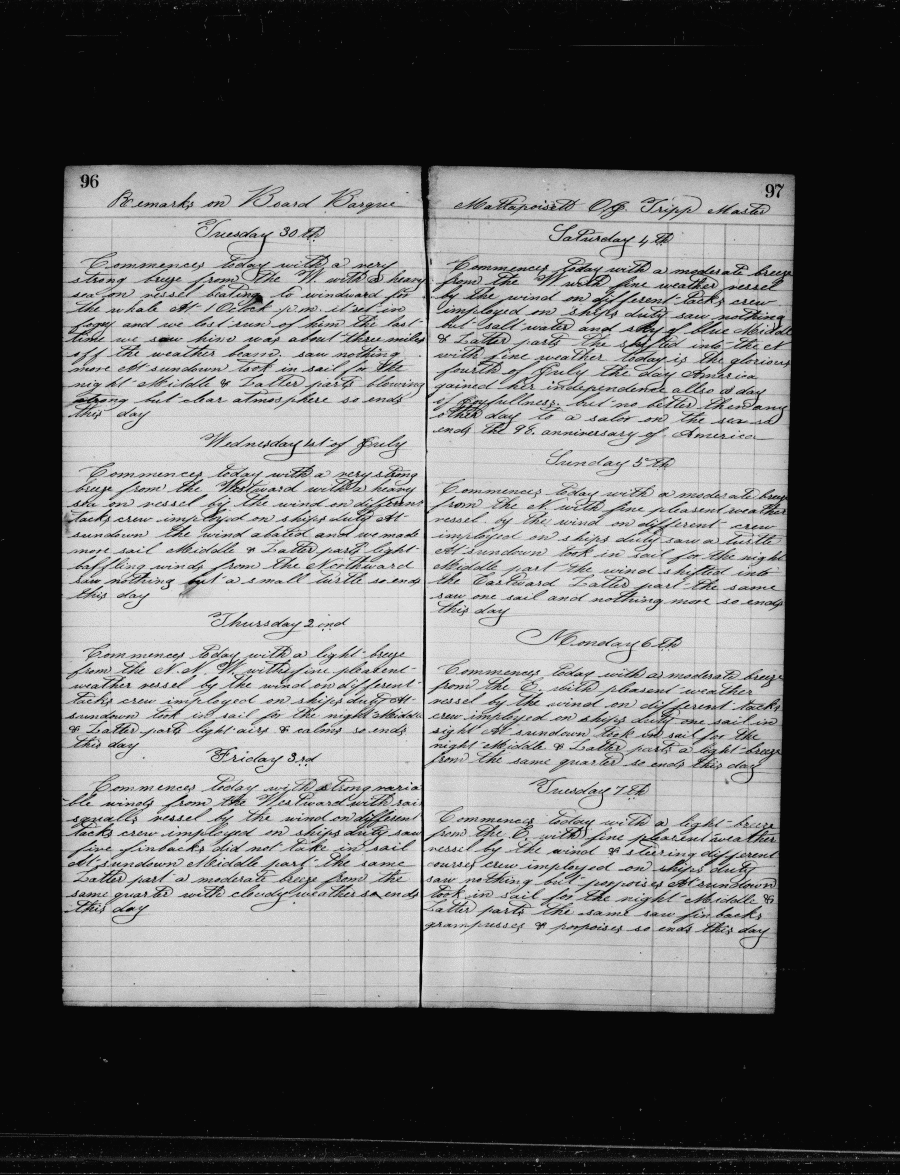 96
Remarks on Board Barque
Tuesday 30th
Commences today with a very
strong breze from the W. with a heavy
sea on vessel beating to windward for
the whale At 1 Oclock p.m. it set in
fogy and we lost sun of him the last
time we saw hine was about three miles
off the weather beam. saw nothing
more At sundown took in sail for the
night Middle & Latter parts blowing
strong but clear atmosphere so ends
this day
Wednesday 1st of July
Commences today with a very strong
breze from the Westward with a heavy
sea on vessel by the wind on different
tacks crew imployed on ships duty At
sundown the wind abated and we made
more sail Middle & Latter parts light
baffling winds from the Northward
saw nothing but a small turtle so ends
this day
Thursday 2nd
Commences today with a light breze
from the N.N.W. with fine plesent
weather vessel by the wind on different
tacks crew imployed on ships duty At
sundown took in sail for the night Middle
& Latter parts light airs & calms so ends
this day
Friday 3rd
Commences today with strong varia
ble winds from the Westward with rain
squalls vessel by the wind on different
tacks crew imployed on ships duty saw
five finbacks did not take in sail
At sundown Middle part the same
Latter part a moderate breze from the
same quarter with cloudy weather so ends
this day
97
Mattapoisett Tripp Master
Saturday 4th
Commences today with a moderate breeze
from the W with fine weather vessel
by the wind on different tacks crew
imployed on ships duty saw nothing
but salt water and sky of blue Middle
& Latter parts the shifted into the N
with fine weather today is the glorious
fourth of July the day America
gained her independence allso a day
of joyfullness, but no better then any
other day to a salor on the sea so
ends the 98. anniversary of America
Sunday 5th
Commences today with a moderate breeze
from the N. with fine pleasent weather
vessel by the wind on different crew
imployed on ships duty saw a turtle
At sundown took in sail for the night
Middle part the wind shifted into
the Eastward Latter part the same
saw one sail and nothing more so ends
this day
Monday 6th
Commences today with a moderate breeze
from the E. with pleasent weather
vessel by the wind on different tacks
crew imployed on ships duty one sail in
sight At sundown took in sail for the
night Middle & Latter parts a light breeze
from the same quarter so ends this day
Tuesday 7th
Commences today with a light breeze
from the E. with fine plearent weather
vessil by the wind & steering different
courses crew imployed on ships duty
saw nothing but porpoises At sundown
took in sail for the night Middle &
Latter parts the same saw finbacks
grampusses & porpoises so ends this day